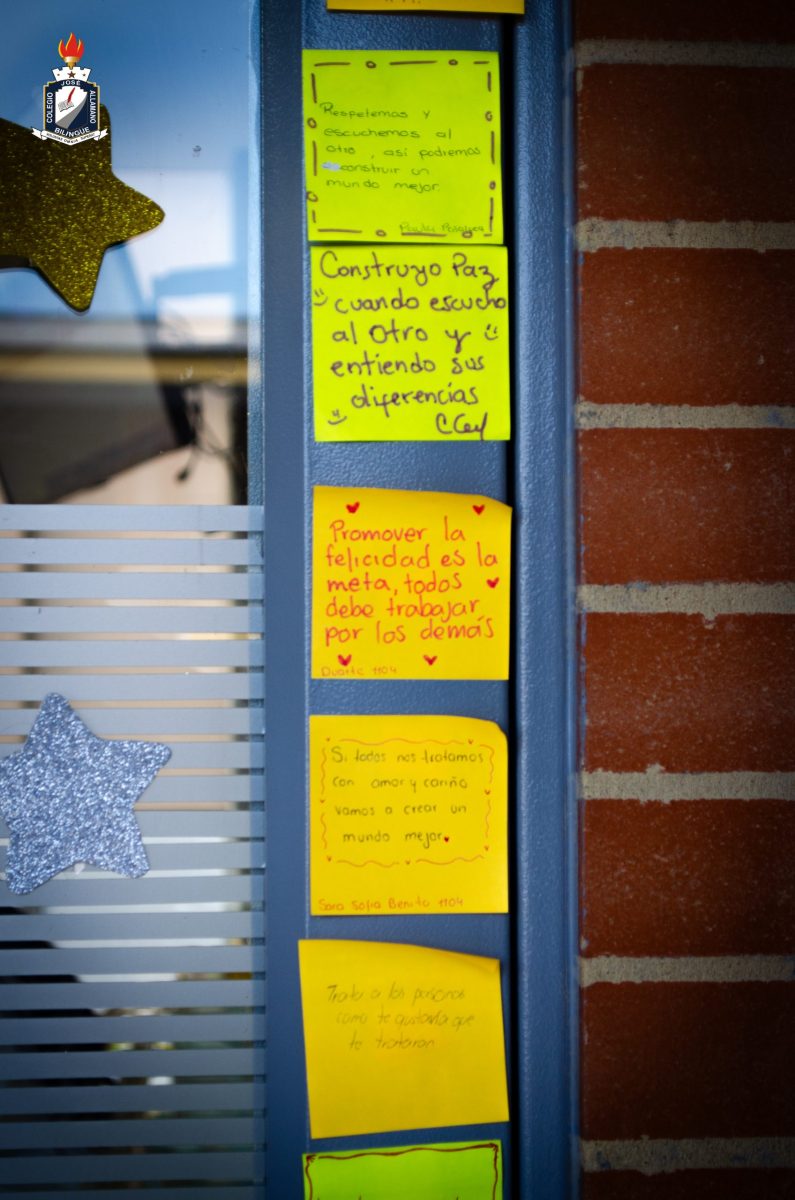 COLEGIO
JOSE
ALLAMANO
BILINGÜE
Respetemos y
escuchemos al
otro, así podremos
construir un
mundo mejor.
Paula
Construyo Paz
cuando escucho
al otro y
entiendo sus
diferencias
Promover la
felicidad es la
meta, todos
debe trabajar
por los demás
Duarte 1104
Si todos nos tratamos
con amor y cariño
vamos a crear un
mundo mejor
Sara Sofia Benito 1104
Trata a las personas
como te gustaría que
te trataran